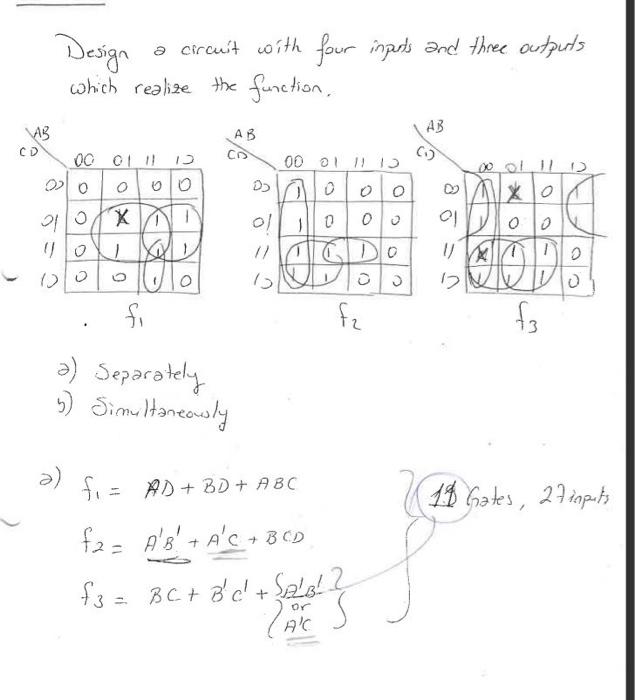 Design a circuit with four inputs and three outputs
which realize the function.
AB AB AB
CD CD CD
00 01 11 10 00 01 11 10 00 01 11 10
00 0 0 0 0 00 1 0 0 0 00 1 X 0 1
01 0 X 1 1 01 1 0 0 0 01 1 0 0 1
11 0 1 1 1 11 1 1 1 0 11 X 1 1 0
10 0 0 1 0 10 1 1 0 0 10 1 1 1 0
f1 f2 f3
a) Separately
b) Simultaneously
a) f1 = AD + BD + ABC
11 Gates, 27 inputs
f2 = A'B' + A'C + BCD
f3 = BC + B'C' + { A'B' }
or
A'C